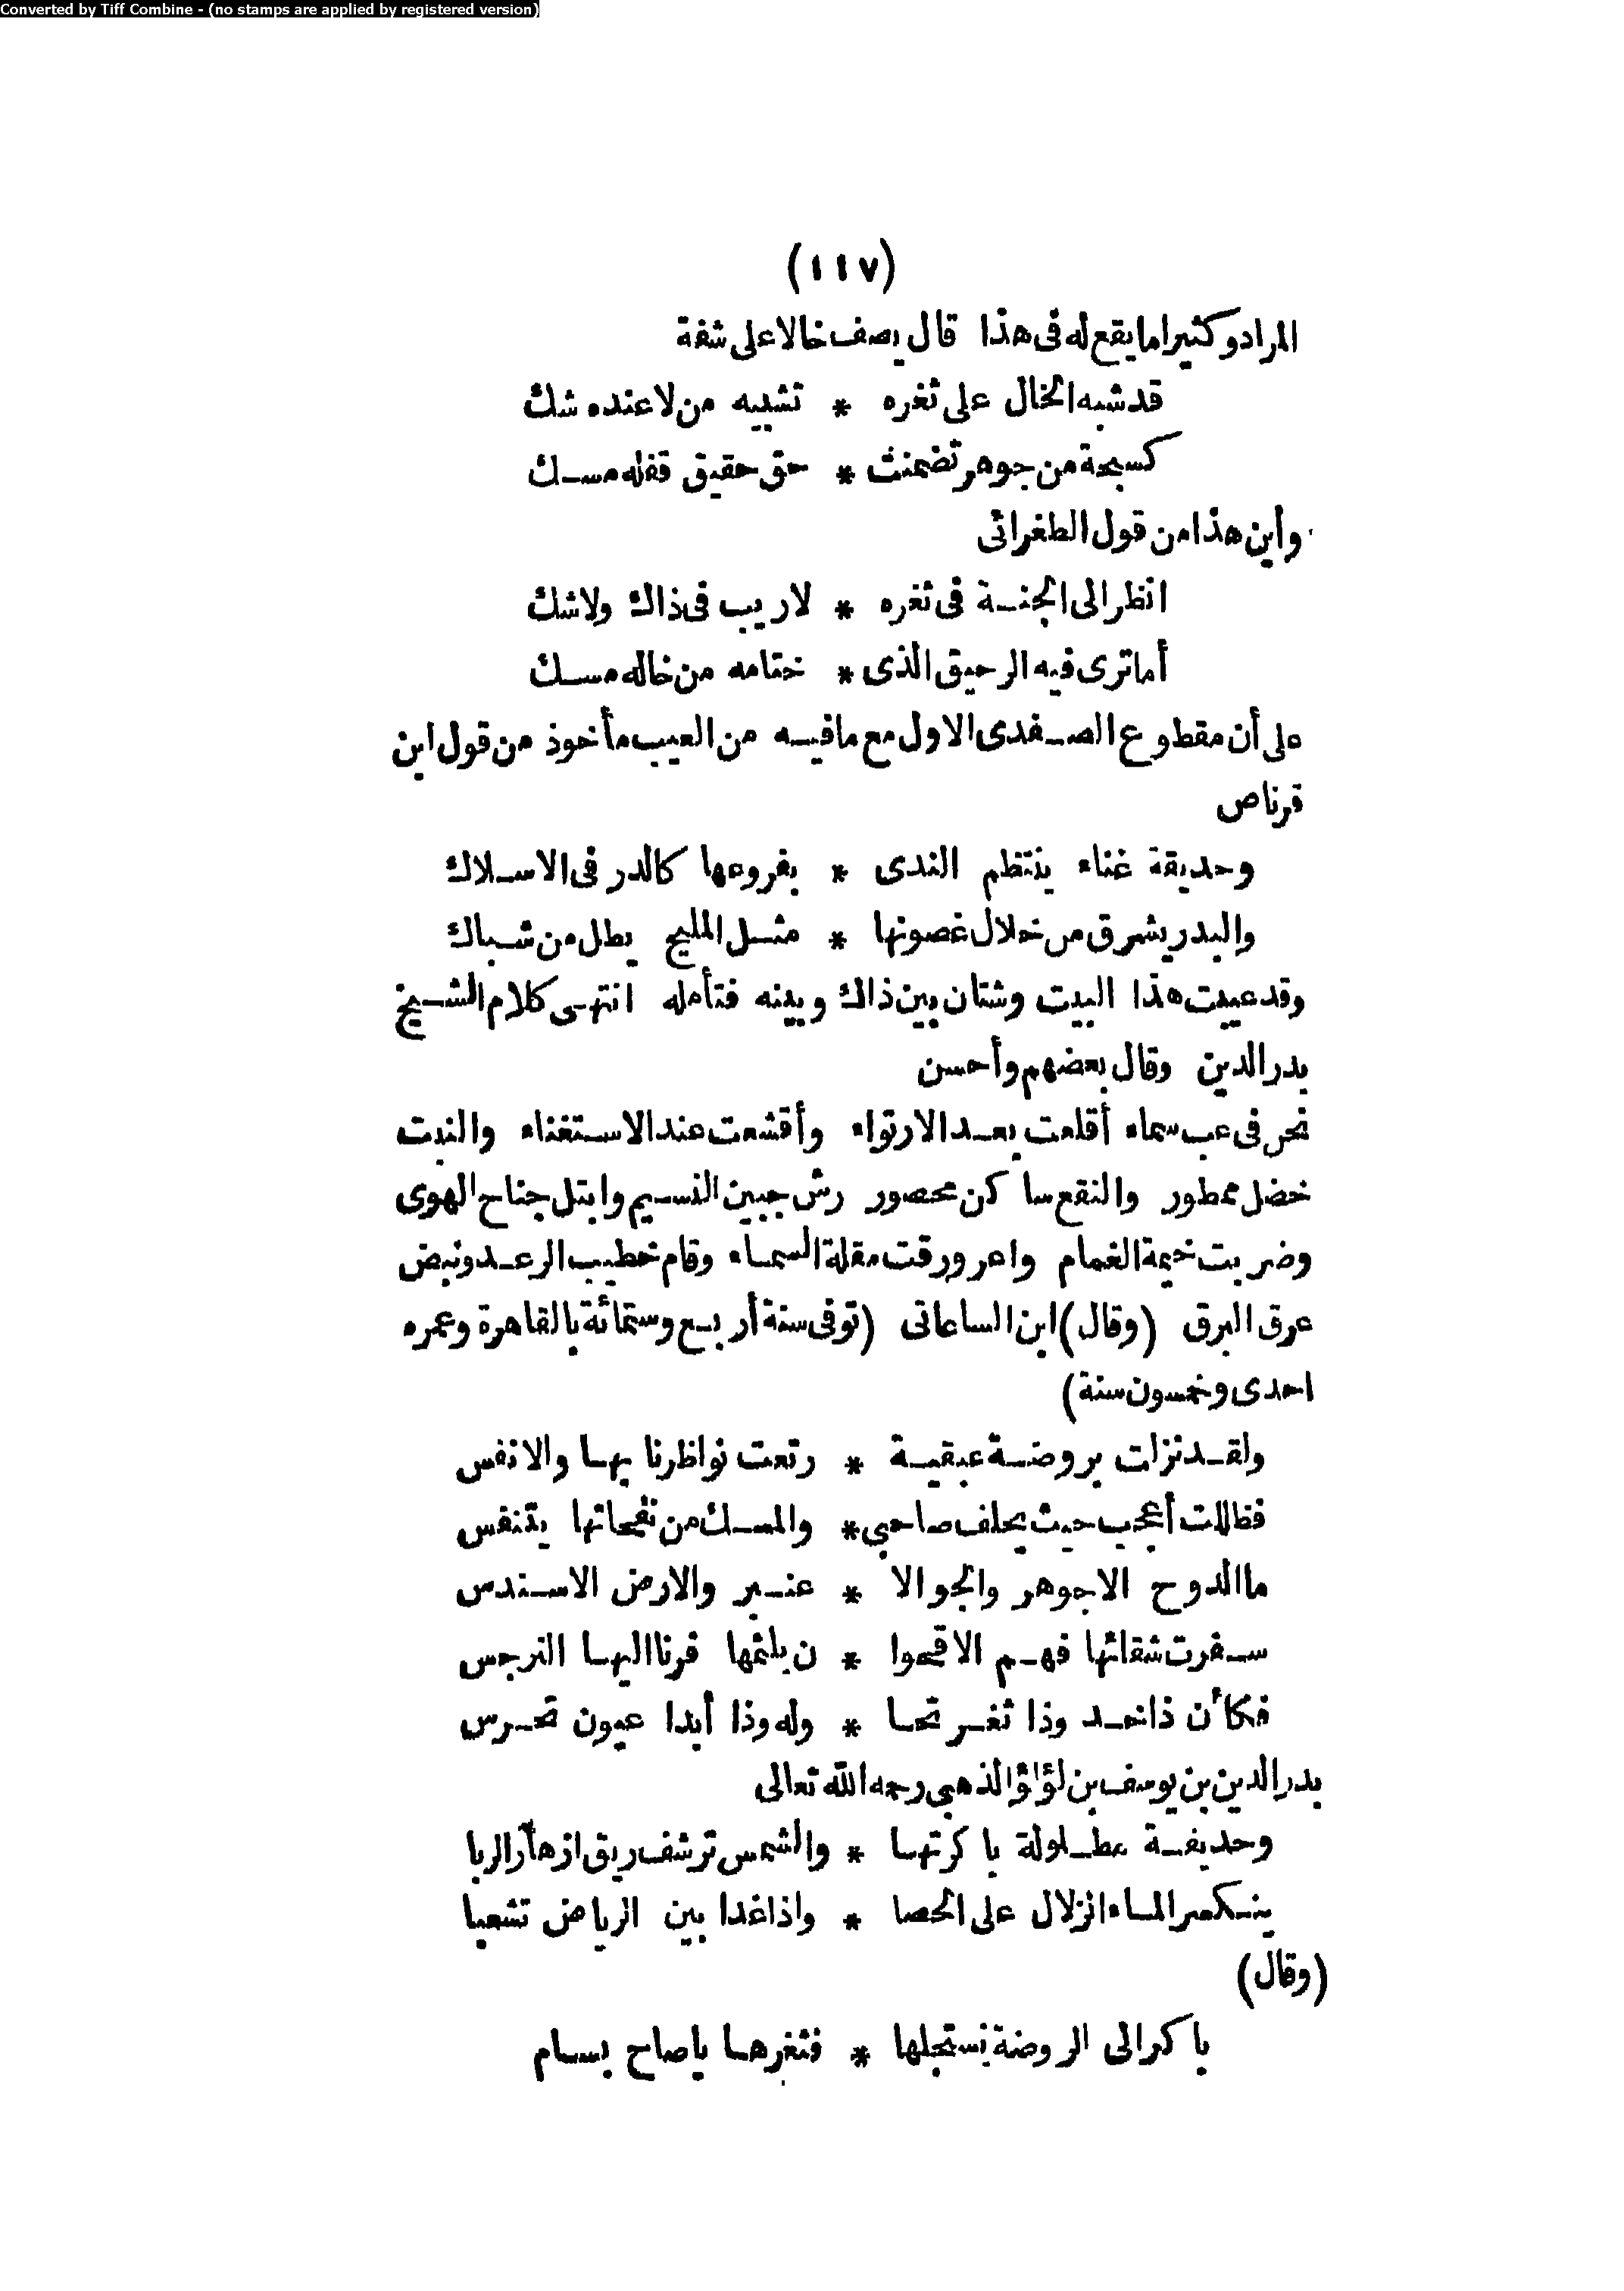 Converted by Tiff Combine - (no stamps are applied by registered version)
(١١٧)
المراد وكثيرا ما يقع له فى هذا قال يصف خالا على شفة
قد شبه الخال على ثغره * تشبيه من لا عنده شك
كسبحة من جوهر تضمنت * حق حقيق قفله مسك
وأين هذا من قول الطغرائى
انظر الى الجنة فى ثغره * لا ريب فى ذاك ولا شك
أما ترى فيه الرحيق الذى * ختامه من خاله مسك
على أن مقطوع الصفدى الاول مع ما فيه من العيب مأخوذ من قول ابن
قرناص
وحديقة غناء ينتظم الندى * بفروعها كالدر فى الاسلاك
والبدر يشرق من خلال غصونها * مثل المليح يطل من شباك
وقد عيبت هذا البيت وشتان بين ذاك وبينه فتأمله انتهى كلام الشيخ
بدر الدين وقال بعضهم وأحسن
نحن فى عب سماء أقلعت بعد الارتواء وأقشعت عند الاستغناء والنبت
خضل ممطور والنقع ساكن محصور رش جبين النسيم وابتل جناح الهوى
وضربت خيمة الغمام واغرورقت مقلة السماء وقام خطيب الرعد ونبض
عرق البرق (وقال) ابن الساعاتى (توفى سنة أربع وستمائة بالقاهرة وعمره
احدى وخمسون سنة)
ولقد نزلت بروضة عبقية * رتعت نواظرنا بها والانفس
فظللت أعجب حيث يحلف صاحبي * والمسك من نفحاتها يتنفس
ما الدوح الا جوهر والجو الا * عنبر والارض الا سندس
سفرت شقائقها فهم الاقحوا * ن بلثمها فرنا اليها النرجس
فكأن ذا خد وذا ثغر تحا * وله وذا أبدا عيون تحرس
بدر الدين بن يوسف بن لؤلؤ الذهبي رحمه الله تعالى
وحديقة مطلولة باكرتها * والشمس ترشف ريق ازهار الربا
ينكسر الماء الزلال على الحصا * واذا غدا بين الرياض تشعبا
(وقال)
باكر الى الروضة نستجلها * فثغرها يا صاح بسام